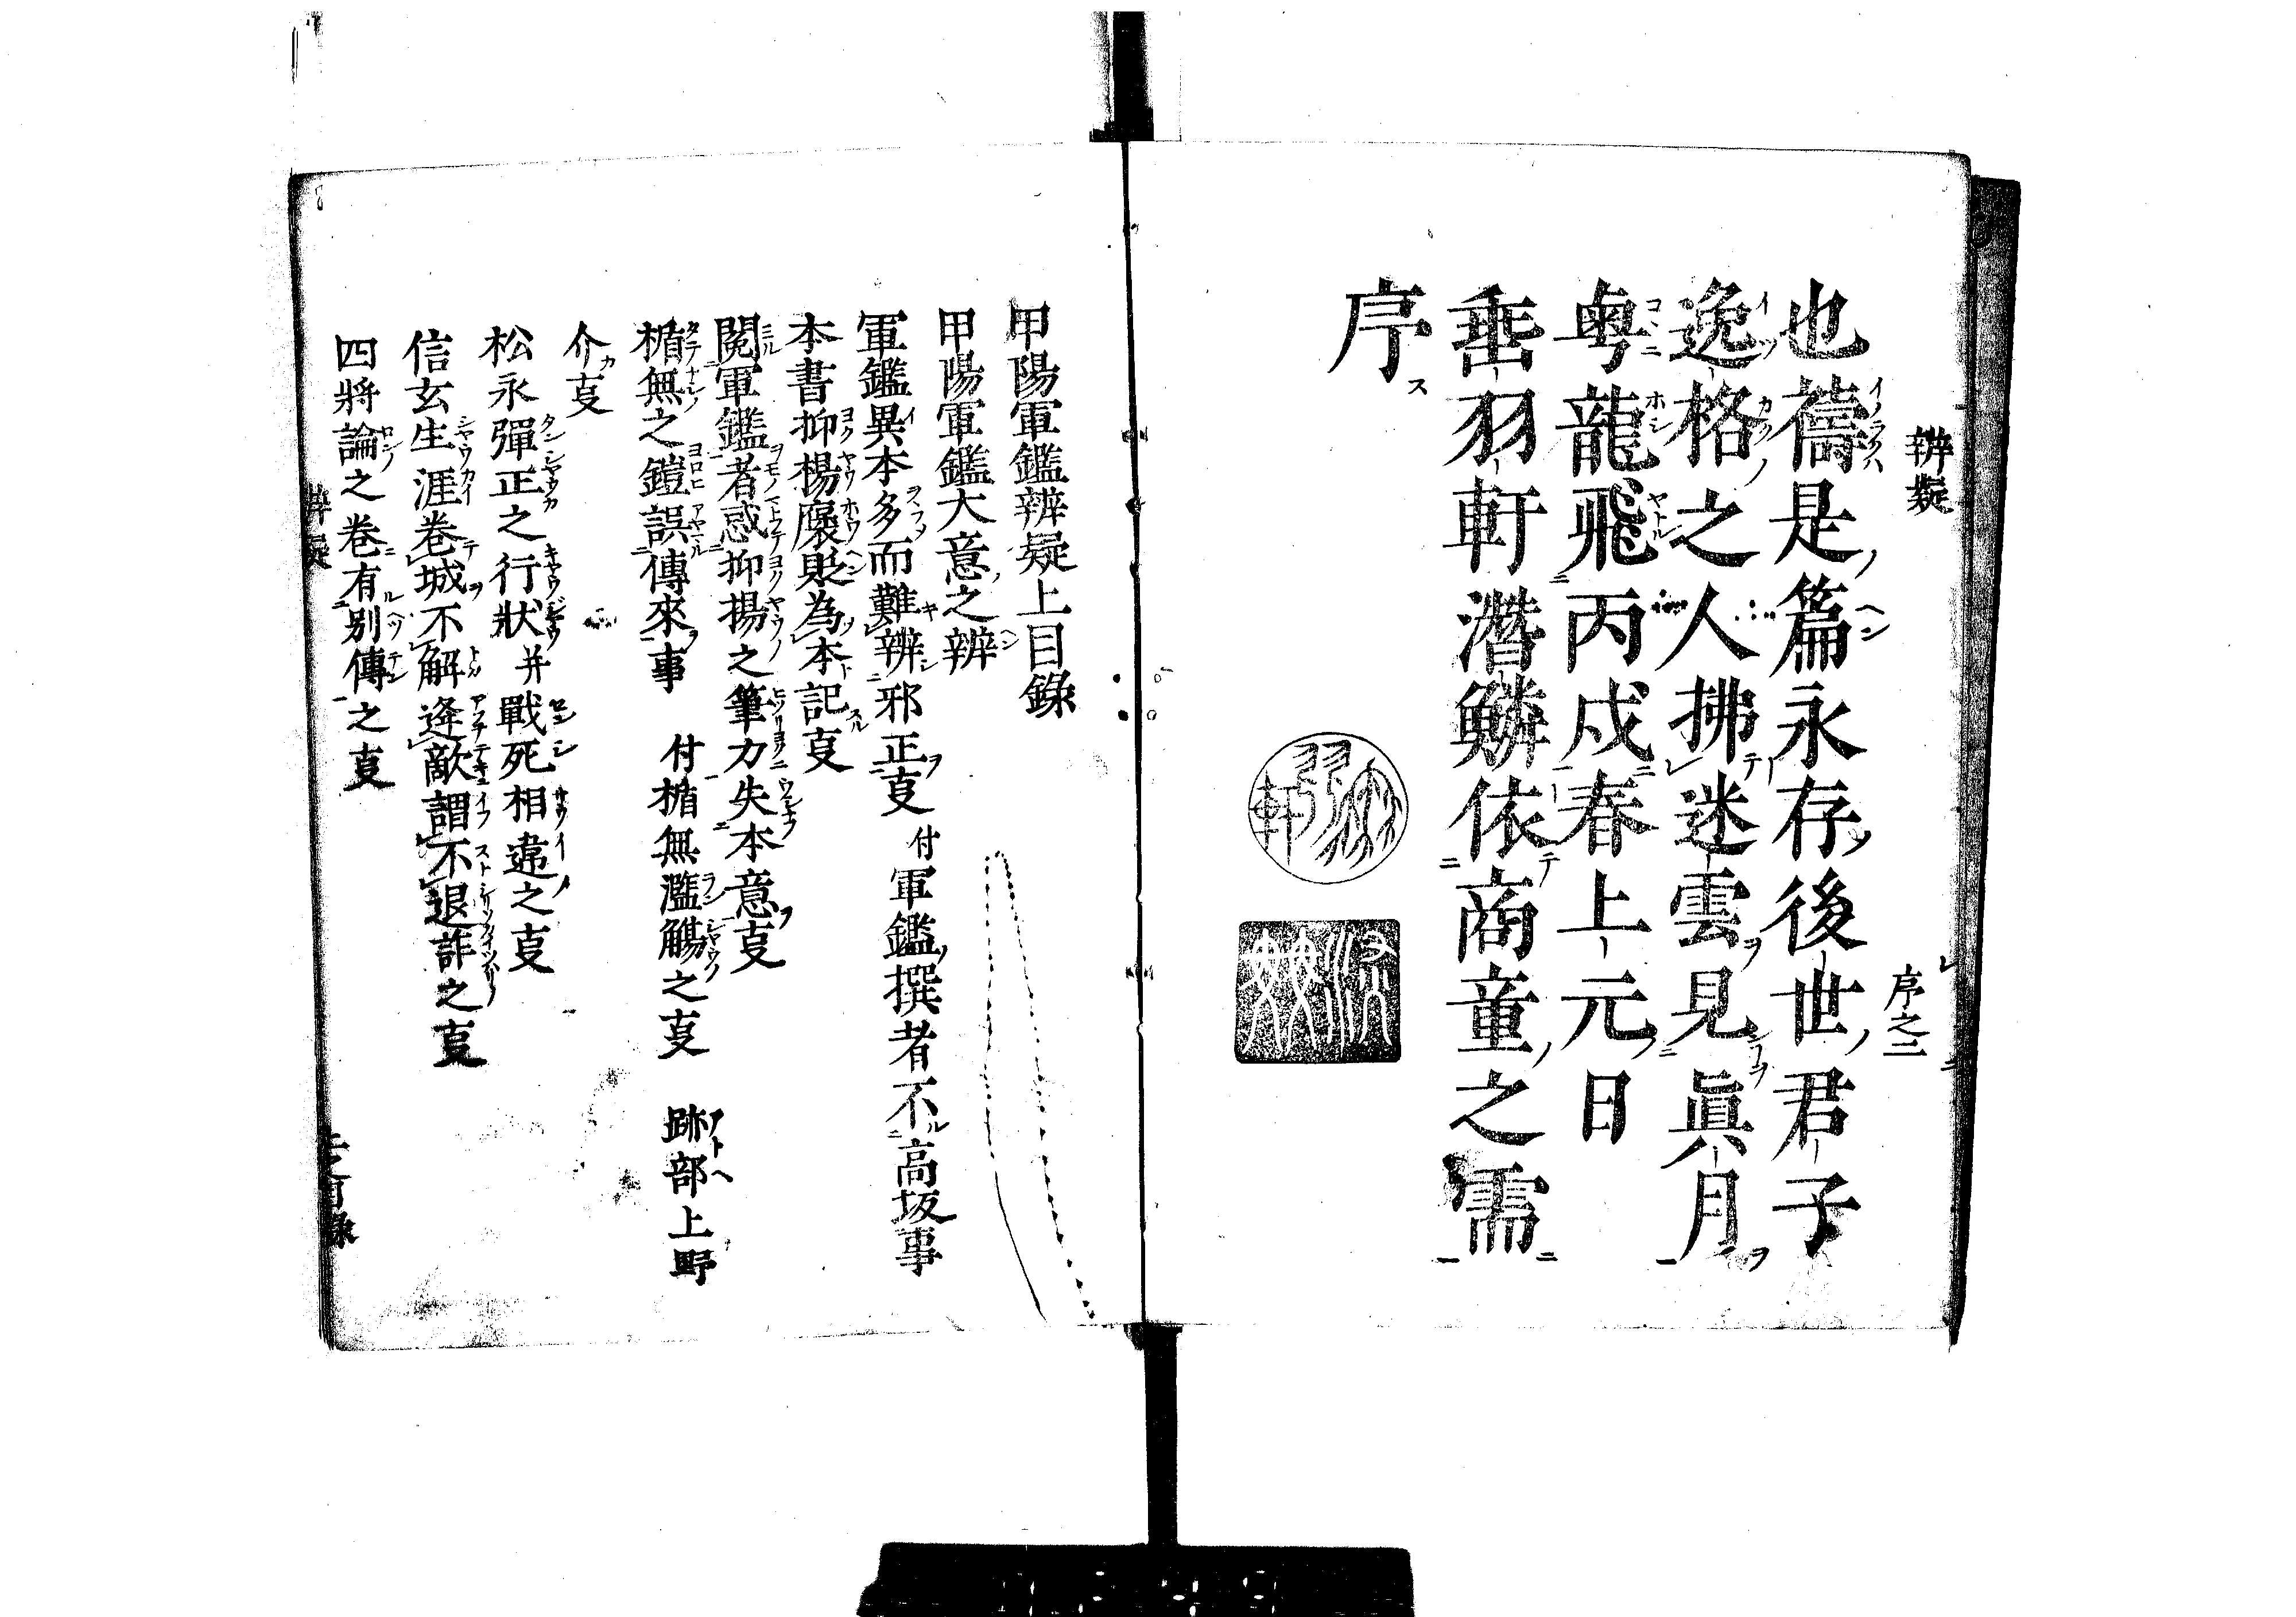 辨疑
序之二
也禱是篇永存後世君子
逸格之人拂迷雲見眞月
粤龍飛丙戌春上元日
垂羽軒潛鱗依商童之需
序ス
甲陽軍鑑辨疑上目錄
甲陽軍鑑大意之辨
軍鑑異本多而難辨邪正叓 付軍鑑撰者不高坂事
本書抑楊褒貶為本記叓
閲軍鑑者惑抑揚之筆力失本意叓
楯無之鎧誤傳來事 付楯無濫觴之叓 跡部上野
介叓
松永彈正之行狀并戰死相違之叓
信玄生涯巻城不解逢敵謂不退詐之叓
四將論之巻有別傳之叓
辨疑
上之目錄